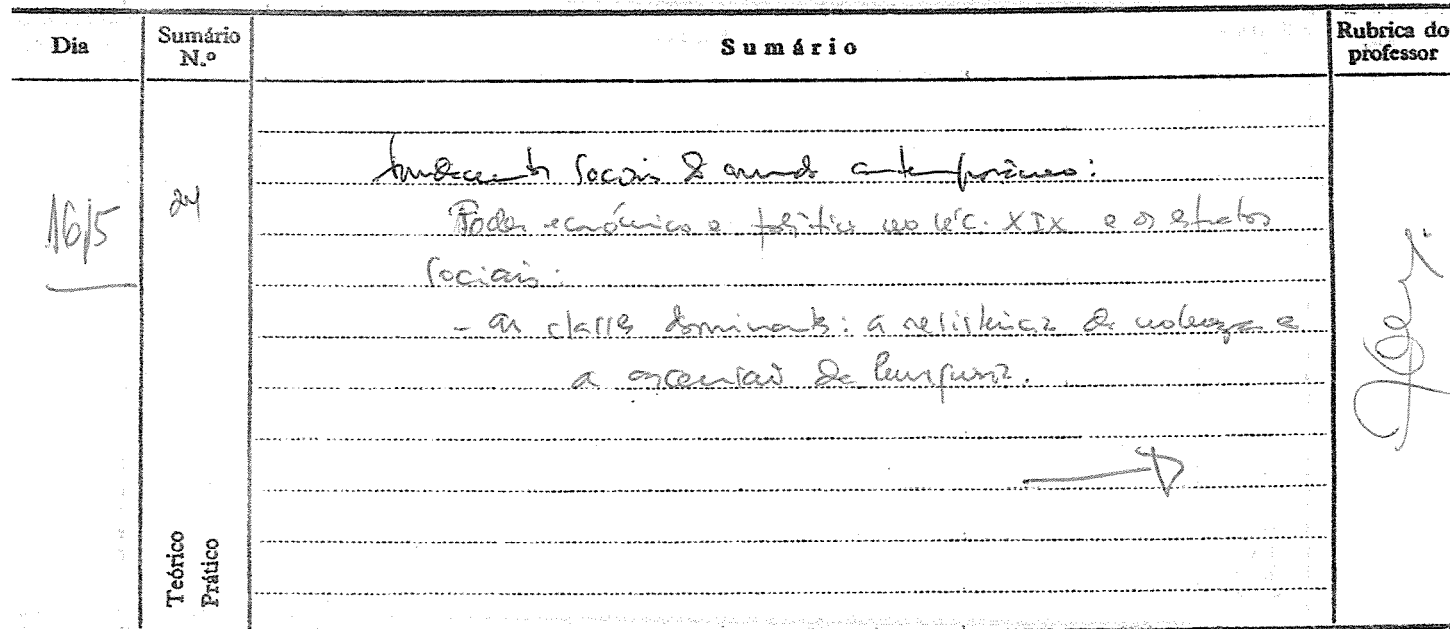 Dia
Sumário
N.º
Sumário
Rubrica do
professor
16/5
24
sociais do mundo contemporâneo:
Poder económico e político no séc. XIX e os estratos
sociais:
- as classes dominantes: a resistência da nobreza e
a ascensão da burguesia.
Teórico
Prático